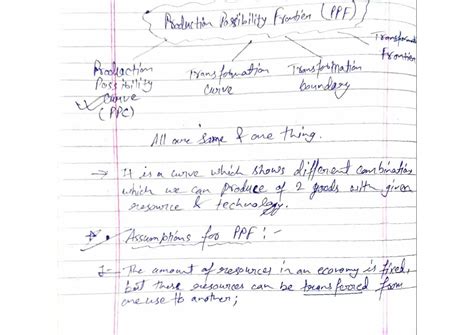 Production Possibility Frontier (PPF)
Production Possibility Curve (PPC)
Transformation curve
Transformation boundary
Transformation Frontier
All are same & one thing.
→ It is a curve which shows different combination
which we can produce of 2 goods with given
resource & technology.
Assumptions for PPF :-
1- The amount of resources in an economy is fixed,
but these resources can be transferred from
one use to another;